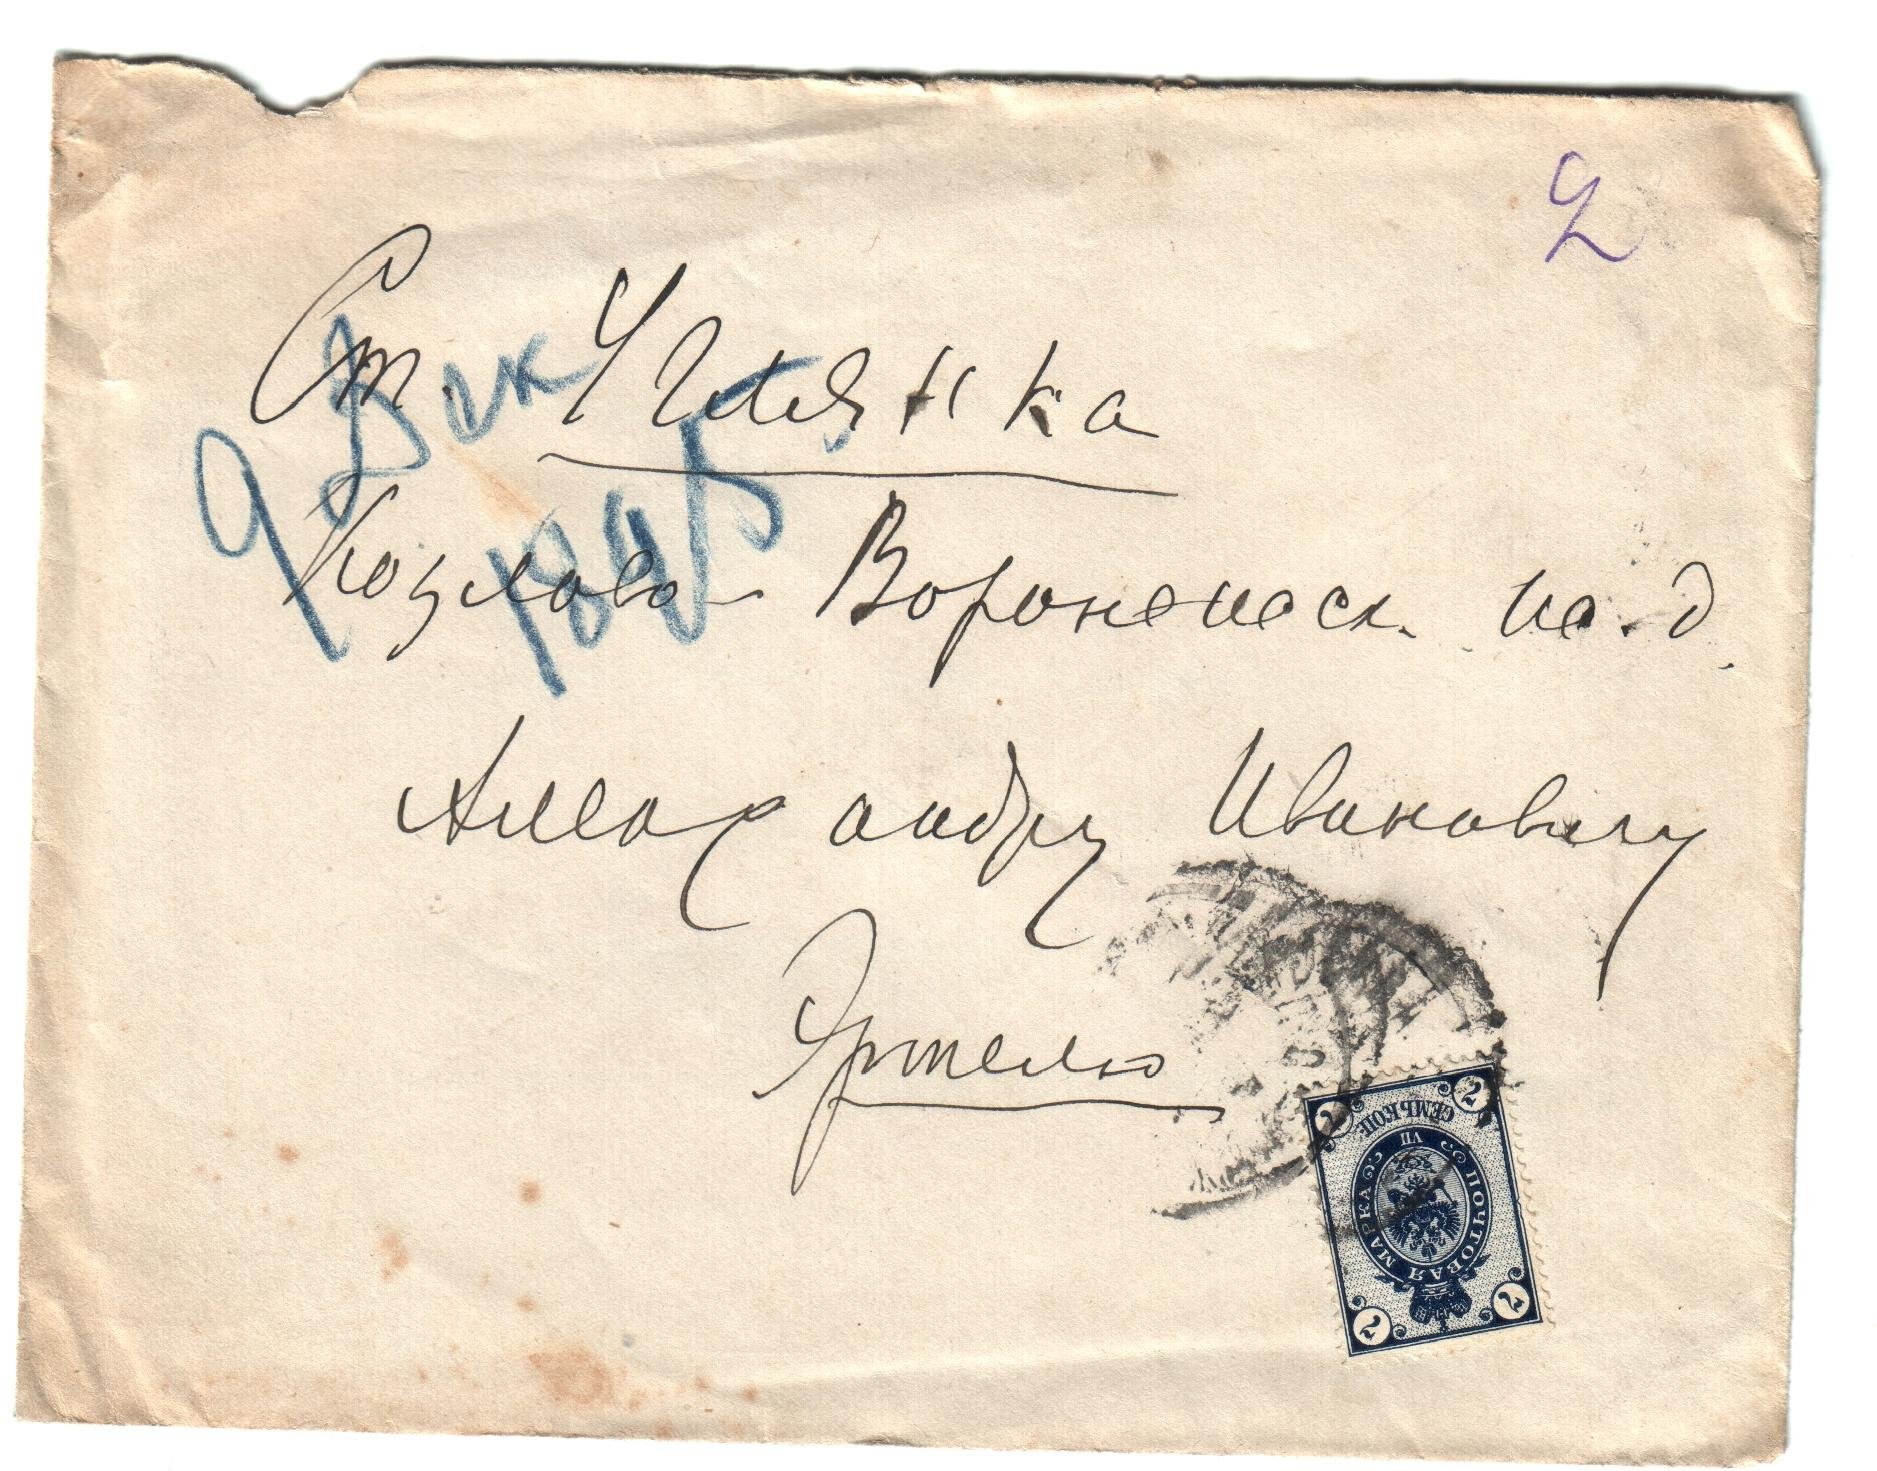 2
Ст. Углянка
9 Дек
1895
Козлово-Воронежск. ж. д.
Александру Ивановичу
Эртелю
7 7
СЕМЬ КОП.
VII
ПОЧТОВАЯ МАРКА
7 7